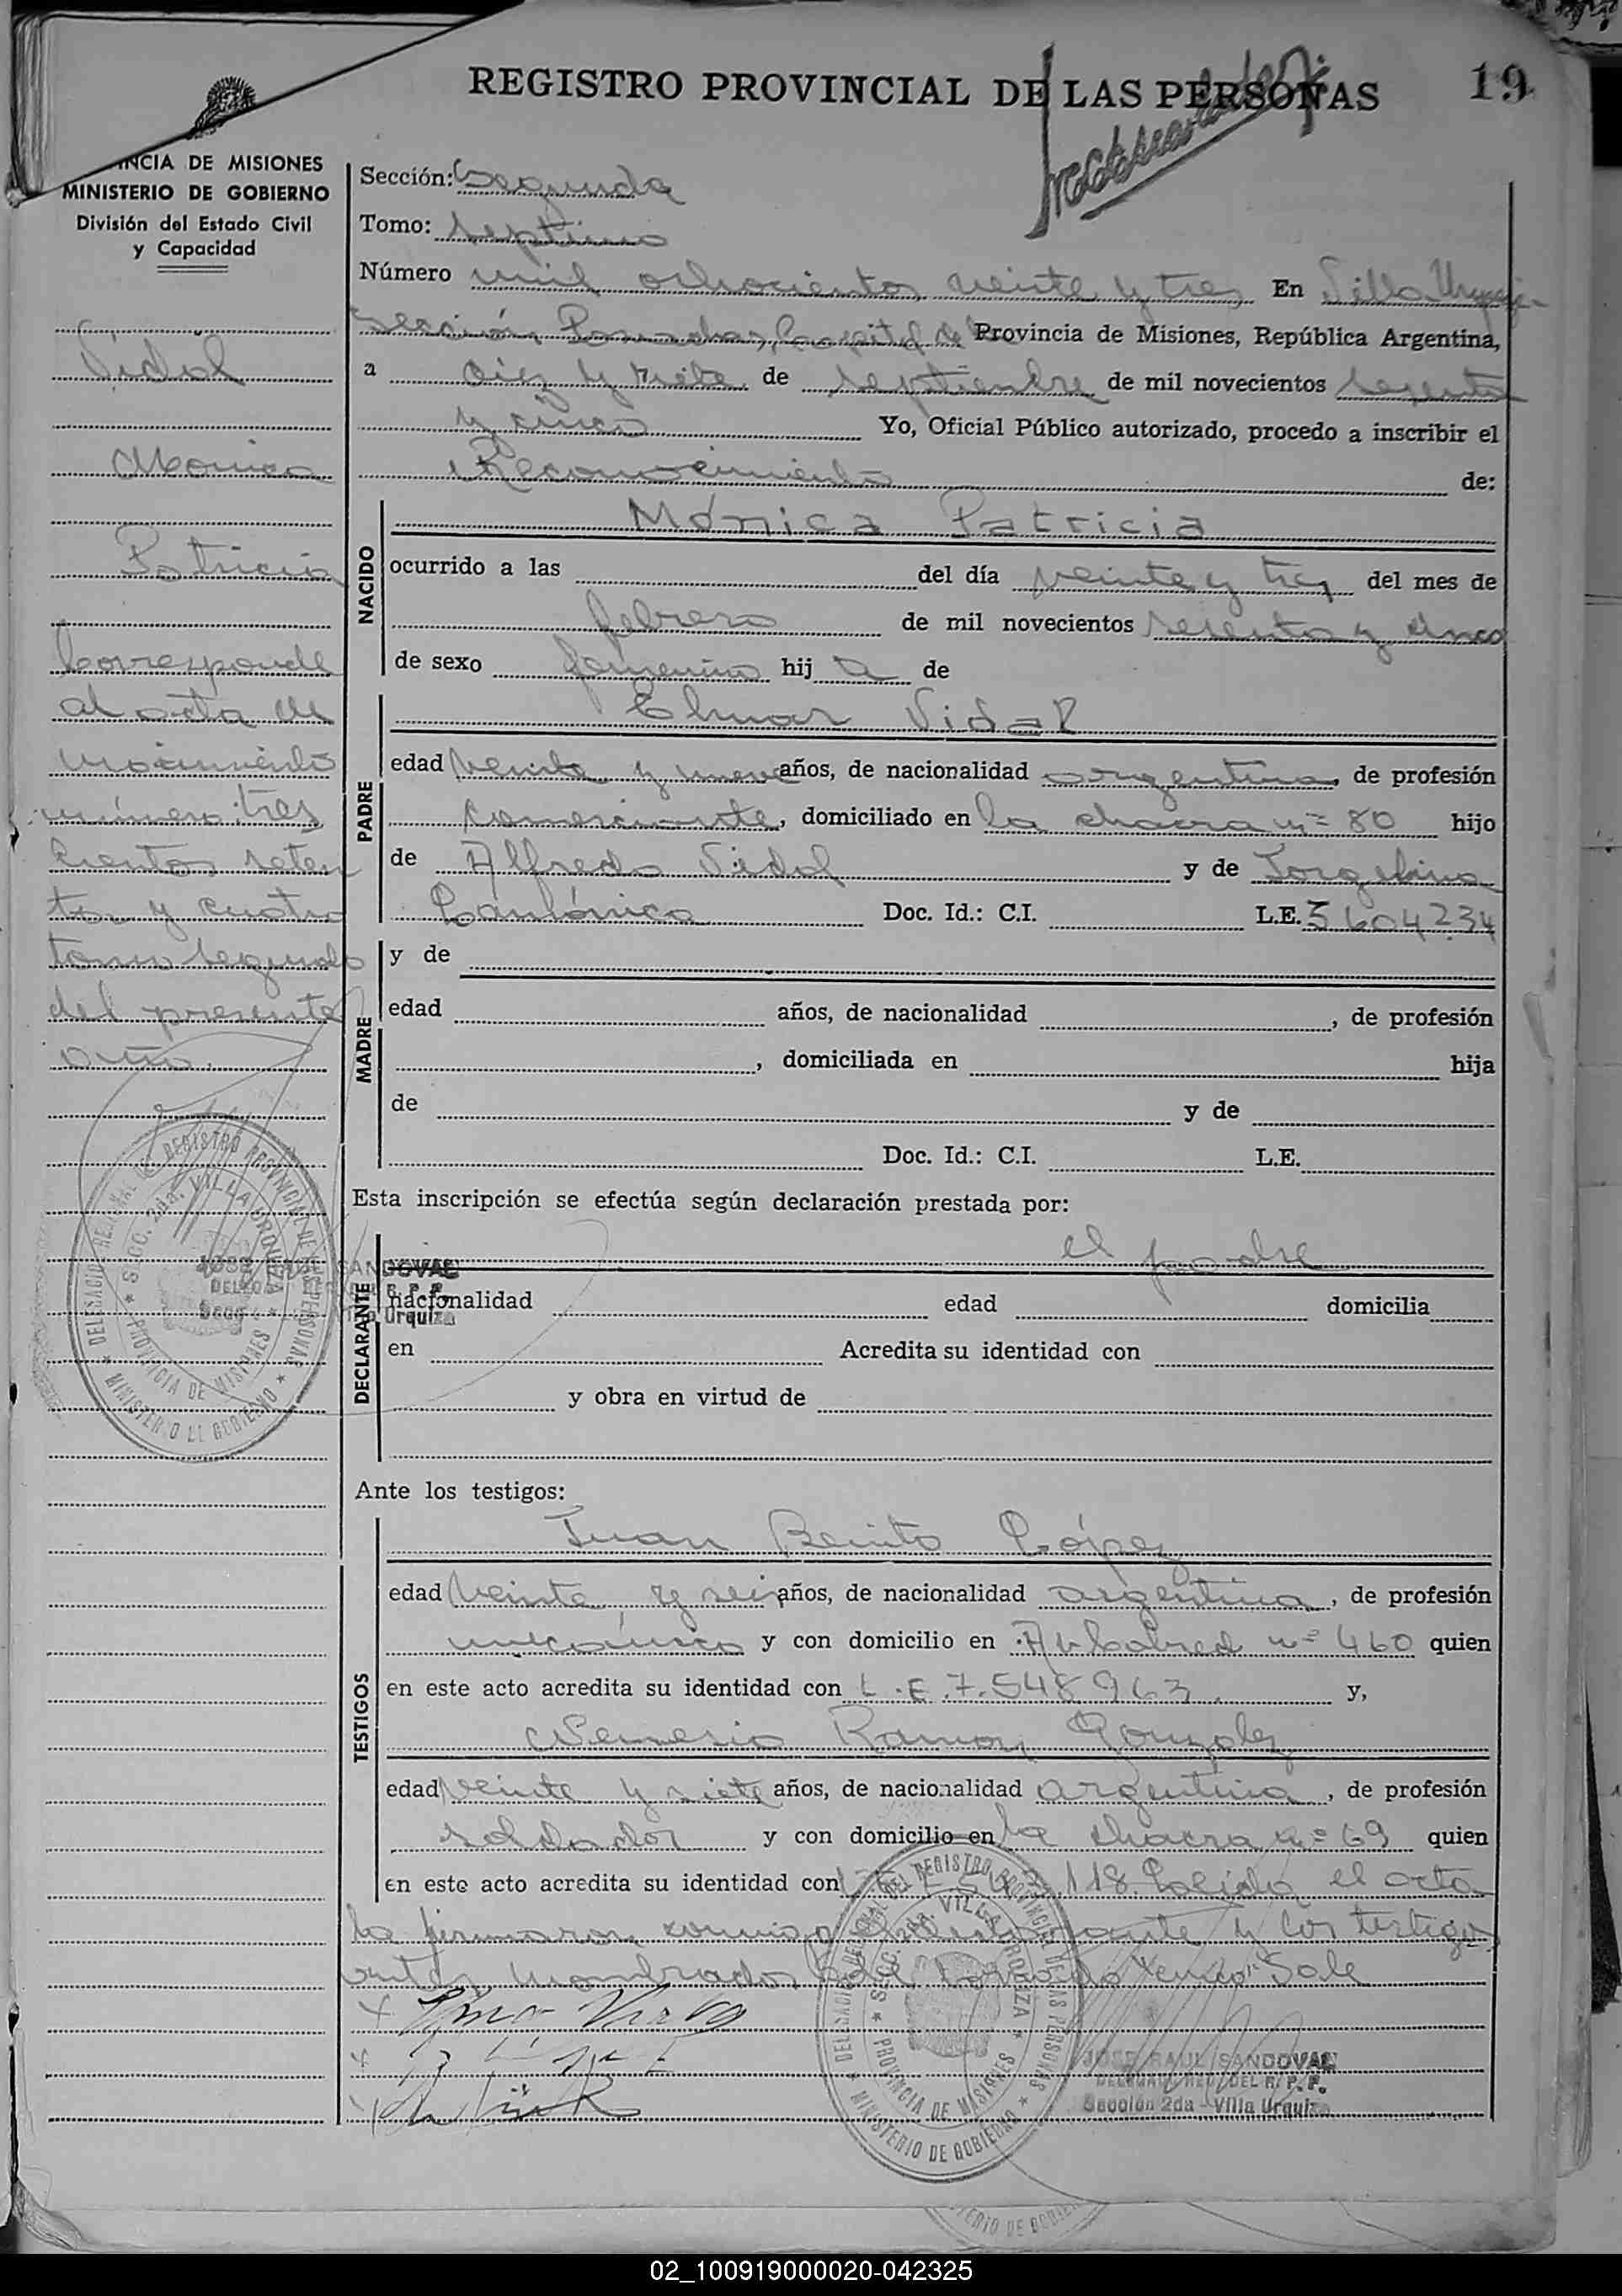 REGISTRO PROVINCIAL DE LAS PERSONAS
19
INCIA DE MISIONES
MINISTERIO DE GOBIERNO
División del Estado Civil
y Capacidad
Vidal
Monica
Patricia
Corresponde
al acta de
nacimiento
número tres
cientos seten
ta y cuatro
tomo segundo
del presente
año.
Sección: Segunda
Tomo: septimo
Número mil ochocientos veinte y tres En Villa Urquiza
sección Posadas, Capital de Provincia de Misiones, República Argentina,
a diez y siete de septiembre de mil novecientos sesenta
y cinco Yo, Oficial Público autorizado, procedo a inscribir el
Reconocimiento de:
NACIDO
Mónica Patricia
ocurrido a las del día veinte y tres del mes de
febrero de mil novecientos sesenta y cinco
de sexo femenino hij a de
PADRE
Vidal
edad veinte y nueve años, de nacionalidad argentina, de profesión
comerciante, domiciliado en la chacra nº 80 hijo
de Alfredo Vidal y de Jorgelina
Doc. Id.: C.I. L.E. 5604234
MADRE
y de
edad años, de nacionalidad , de profesión
, domiciliada en hija
de y de
Doc. Id.: C.I. L.E.
Esta inscripción se efectúa según declaración prestada por:
DECLARANTE
el padre
nacionalidad edad domicilia
en Acredita su identidad con
y obra en virtud de
Ante los testigos:
TESTIGOS
Juan Benito López
edad veinte y seis años, de nacionalidad argentina, de profesión
mecánico y con domicilio en nº 460 quien
en este acto acredita su identidad con L.E. 7.548963 y,
Nemesio Ramon Gonzalez
edad veinte y siete años, de nacionalidad argentina, de profesión
soldador y con domicilio en la chacra nº 69 quien
en este acto acredita su identidad con 118. Leida el acta
la firmaron conmigo el declarante y los testigos
antes nombrados Vale
JOSE RAUL SANDOVAL
DEL R. P. P.
Sección 2da - Villa Urquiza
DELEGACIO REGIONAL DEL REGISTRO PROVINCIAL DE LAS PERSONAS
SECC. 2da. VILLA URQUIZA
PROVINCIA DE MISIONES
MINISTERIO DE GOBIERNO
02_100919000020-042325